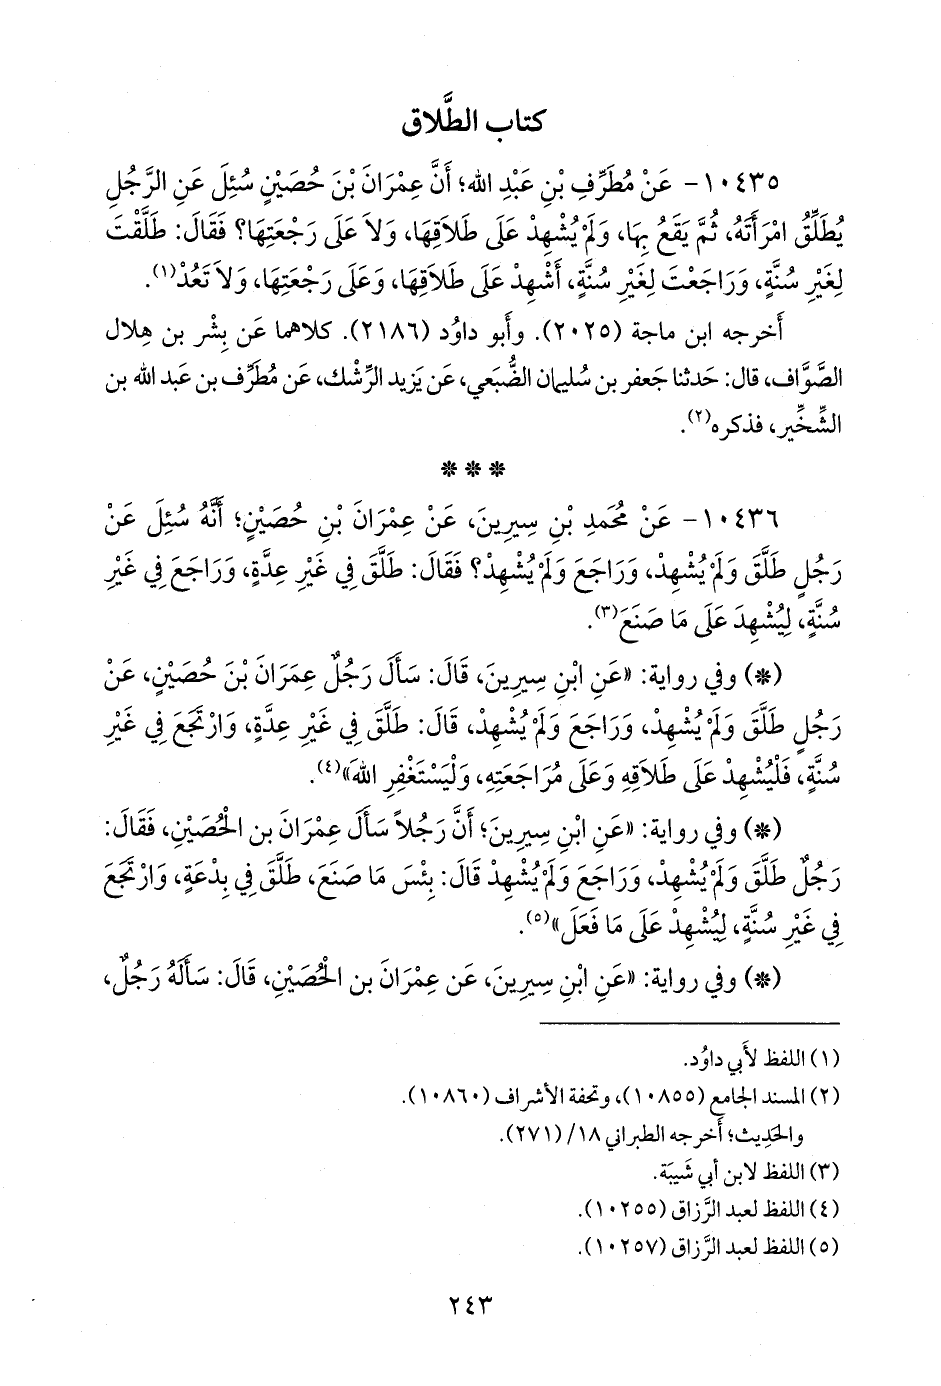 كتاب الطَّلاق
١٠٤٣٥- عَنْ مُطَرِّفِ بْنِ عَبْدِ الله؛ أَنَّ عِمْرَانَ بْنَ حُصَيْنٍ سُئِلَ عَنِ الرَّجُلِ
يُطَلِّقُ امْرَأَتَهُ، ثُمَّ يَقَعُ بِهَا، وَلَمْ يُشْهِدْ عَلَى طَلاَقِهَا، وَلاَ عَلَى رَجْعَتِهَا؟ فَقَالَ: طَلَّقْتَ
لِغَيْرِ سُنَّةٍ، وَرَاجَعْتَ لِغَيْرِ سُنَّةٍ، أَشْهِدْ عَلَى طَلاَقِهَا، وَعَلَى رَجْعَتِهَا، وَلاَ تَعُدْ(١).
أَخرجه ابن ماجة (٢٠٢٥). وأَبو داوُد (٢١٨٦). كلاهما عَن بِشْر بن هِلال
الصَّوَّاف، قال: حَدثنا جَعفر بن سُليمان الضُّبَعي، عَن يَزيد الرِّشْك، عَن مُطَرِّف بن عَبد الله بن
الشِّخِّير، فذكره(٢).
* * *
١٠٤٣٦- عَنْ مُحَمدِ بْنِ سِيرِينَ، عَنْ عِمْرَانَ بْنِ حُصَيْنٍ؛ أَنَّهُ سُئِلَ عَنْ
رَجُلٍ طَلَّقَ وَلَمْ يُشْهِدْ، وَرَاجَعَ وَلَمْ يُشْهِدْ؟ فَقَالَ: طَلَّقَ فِي غَيْرِ عِدَّةٍ، وَرَاجَعَ فِي غَيْرِ
سُنَّةٍ، لِيُشْهِدَ عَلَى مَا صَنَعَ(٣).
(*) وفي رواية: «عَنِ ابْنِ سِيرِينَ، قَالَ: سَأَلَ رَجُلٌ عِمَرَانَ بْنَ حُصَيْنٍ، عَنْ
رَجُلٍ طَلَّقَ وَلَمْ يُشْهِدْ، وَرَاجَعَ وَلَمْ يُشْهِدْ، قَالَ: طَلَّقَ فِي غَيْرِ عِدَّةٍ، وَارْتَجَعَ فِي غَيْرِ
سُنَّةٍ، فَلْيُشْهِدْ عَلَى طَلاَقِهِ وَعَلَى مُرَاجَعَتِهِ، وَلْيَسْتَغْفِرِ اللهَ»(٤).
(*) وفي رواية: «عَنِ ابْنِ سِيرِينَ؛ أَنَّ رَجُلاً سَأَلَ عِمْرَانَ بن الْحُصَيْنِ، فَقَالَ:
رَجُلٌ طَلَّقَ وَلَمْ يُشْهِدْ، وَرَاجَعَ وَلَمْ يُشْهِدْ قَالَ: بِئْسَ مَا صَنَعَ، طَلَّقَ فِي بِدْعَةٍ، وَارْتَجَعَ
فِي غَيْرِ سُنَّةٍ، لِيُشْهِدْ عَلَى مَا فَعَلَ»(٥).
(*) وفي رواية: «عَنِ ابْنِ سِيرِينَ، عَن عِمْرَانَ بن الْحُصَيْنِ، قَالَ: سَأَلَهُ رَجُلٌ،
(١) اللفظ لأَبي داوُد.
(٢) المسند الجامع (١٠٨٥٥)، وتحفة الأشراف (١٠٨٦٠).
والحَدِيث؛ أَخرجه الطبراني ١٨/ (٢٧١).
(٣) اللفظ لابن أَبي شَيبَة.
(٤) اللفظ لعبد الرَّزاق (١٠٢٥٥).
(٥) اللفظ لعبد الرَّزاق (١٠٢٥٧).
٢٤٣